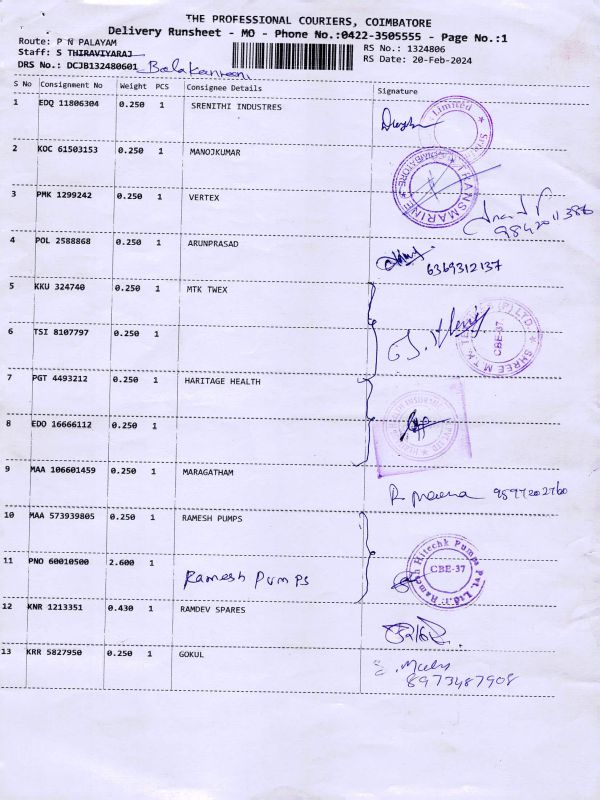 THE PROFESSIONAL COURIERS, COIMBATORE
Delivery Runsheet - MO - Phone No.:0422-3505555 - Page No.:1
Route: P N PALAYAM RS No.: 1324806
Staff: S THIRAVIYARAJ RS Date: 20-Feb-2024
DRS No.: DCJB132480601
S No Consignment No Weight PCS Consignee Details Signature
1 EDQ 11806304 0.250 1 SRENITHI INDUSTRES
Limited
2 KOC 61503153 0.250 1 MANOJKUMAR
TRANSMARINE
3 PMK 1299242 0.250 1 VERTEX
9842011386
4 POL 2588868 0.250 1 ARUNPRASAD
6369312137
5 KKU 324740 0.250 1 MTK TWEX
(P) LTD. SHREE M T K CBE-37
6 TSI 8107797 0.250 1
7 PGT 4493212 0.250 1 HARITAGE HEALTH
8 EDO 16666112 0.250 1
9 MAA 106601459 0.250 1 MARAGATHAM
9597202760
10 MAA 573939805 0.250 1 RAMESH PUMPS
11 PNO 60010500 2.600 1 Ramesh Pumps
Ramesh Hitechk Pumps Pvt. Ltd. CBE-37
12 KNR 1213351 0.430 1 RAMDEV SPARES
13 KRR 5827950 0.250 1 GOKUL
8973487908